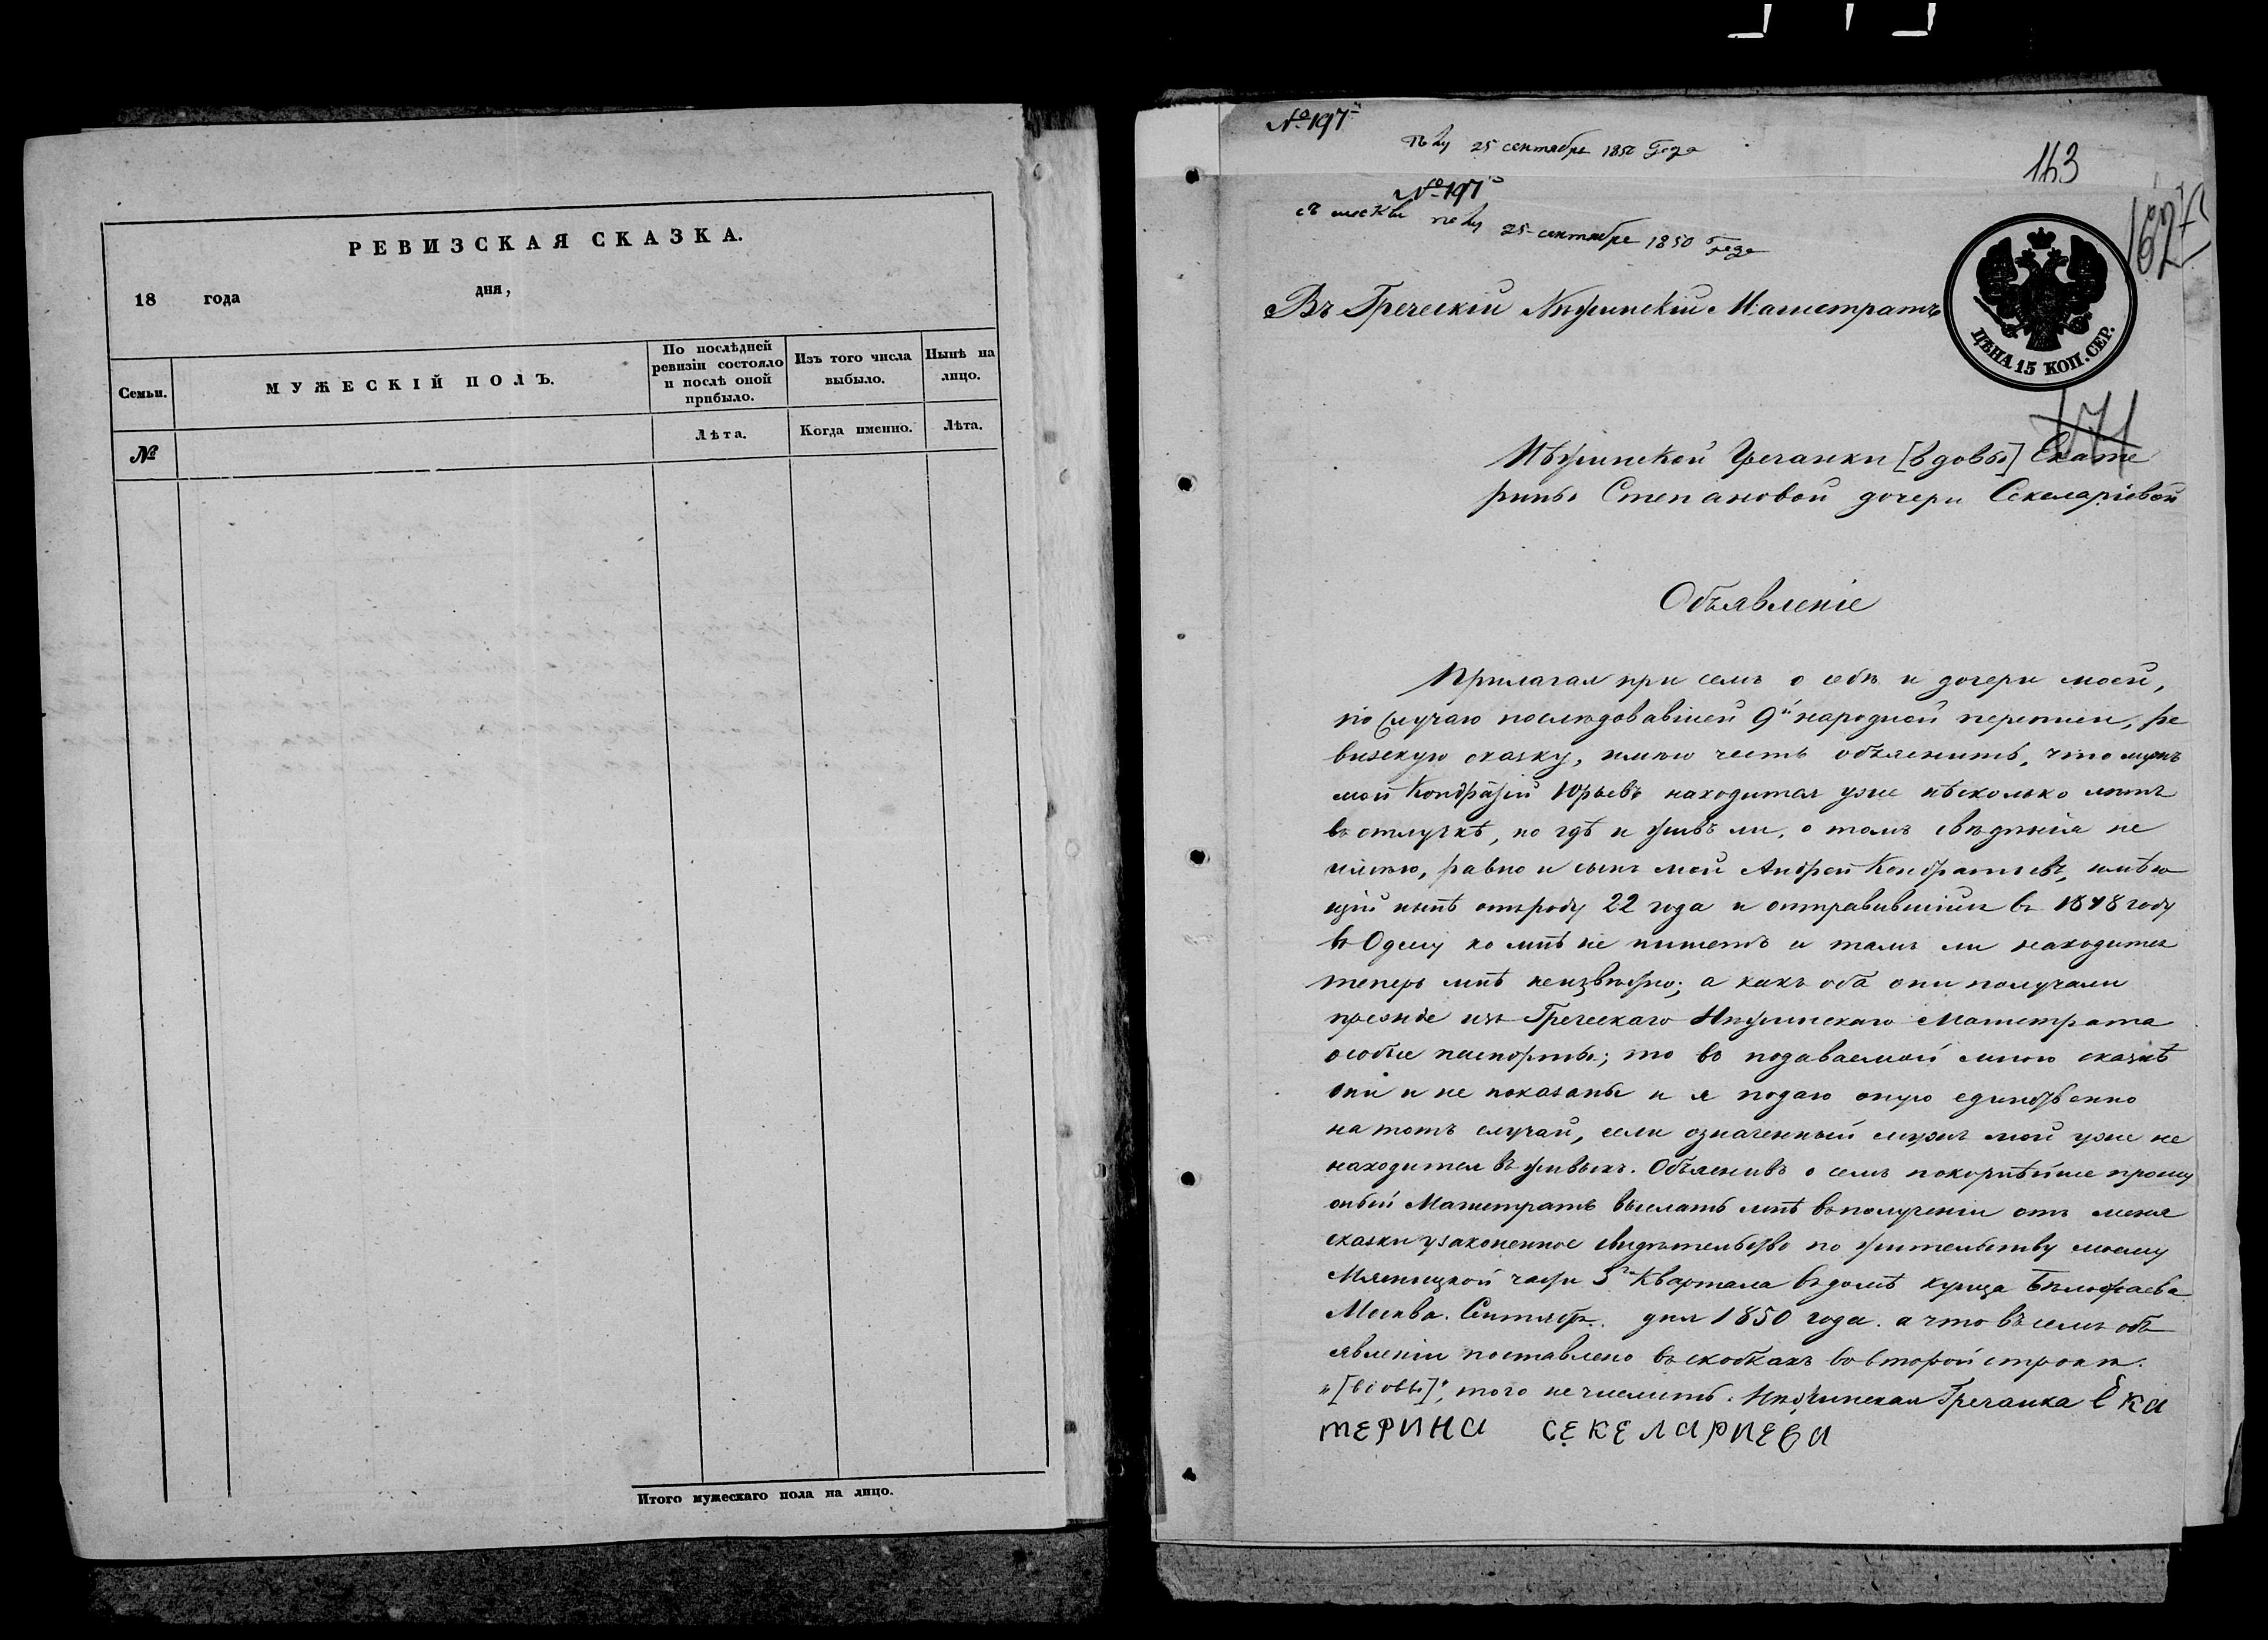 РЕВИЗСКАЯ СКАЗКА.
18 года дня,
Семьи.
МУЖЕСКІЙ ПОЛЪ.
По послѣдней
ревизіи состояло
и послѣ оной
прибыло.
Изъ того числа
выбыло.
Нынѣ на
лицо.
№
Лѣта.
Когда именно.
Лѣта.
Итого мужескаго пола на лицо.
№ 197
25 сентября 1850 Года
163
№ 197
25 сентября 1850 Года
162
Въ Греческій Нѣжинскій Магистратъ
ЦѢНА 15 КОП. СЕР.
171
Нѣжинской Гречанки [вдовы] Екате
рины Степановой дочери Секеларіевой
Объявленіе
Прилагая при семъ о себѣ и дочери моей,
по случаю послѣдовавшей 9й народной переписи, ре
визскую сказку, имѣю честь объяснить, что мужъ
мой Кондратій Юрьевъ находится уже нѣсколько лѣтъ
въ отлучкѣ, но гдѣ и живъ ли, о томъ свѣденія не
имѣю, равно и сынъ мой Андрей Кондратьевъ, имѣю
щій нынѣ отъ роду 22 года и отправившійся въ 1848 году
въ Одессу ко мнѣ не пишетъ и тамъ ли находится
теперь мнѣ неизвѣстно; а какъ оба они получали
прежде изъ Греческаго Нѣжинскаго Магистрата
особые паспорты; то во подаваемой мною сказкѣ
они и не показаны и я подаю оную единственно
на тотъ случай, если означенный мужъ мой уже не
находится въ живыхъ. Объяснивъ о семъ покорнѣйше прошу
оный Магистратъ выслать мнѣ въ полученіи отъ меня
сказки узаконенное свидѣтельство по жительству моему
Мясницкой части 3го Квартала въ домѣ купца
Москва. Сентябр. дня 1850 года. а что въ семъ объ
явленіи поставлено въ скобкахъ во второй строкѣ
„[вдовы]", того не числить. Нѣжинская Гречанка Ека
терина Секелариева